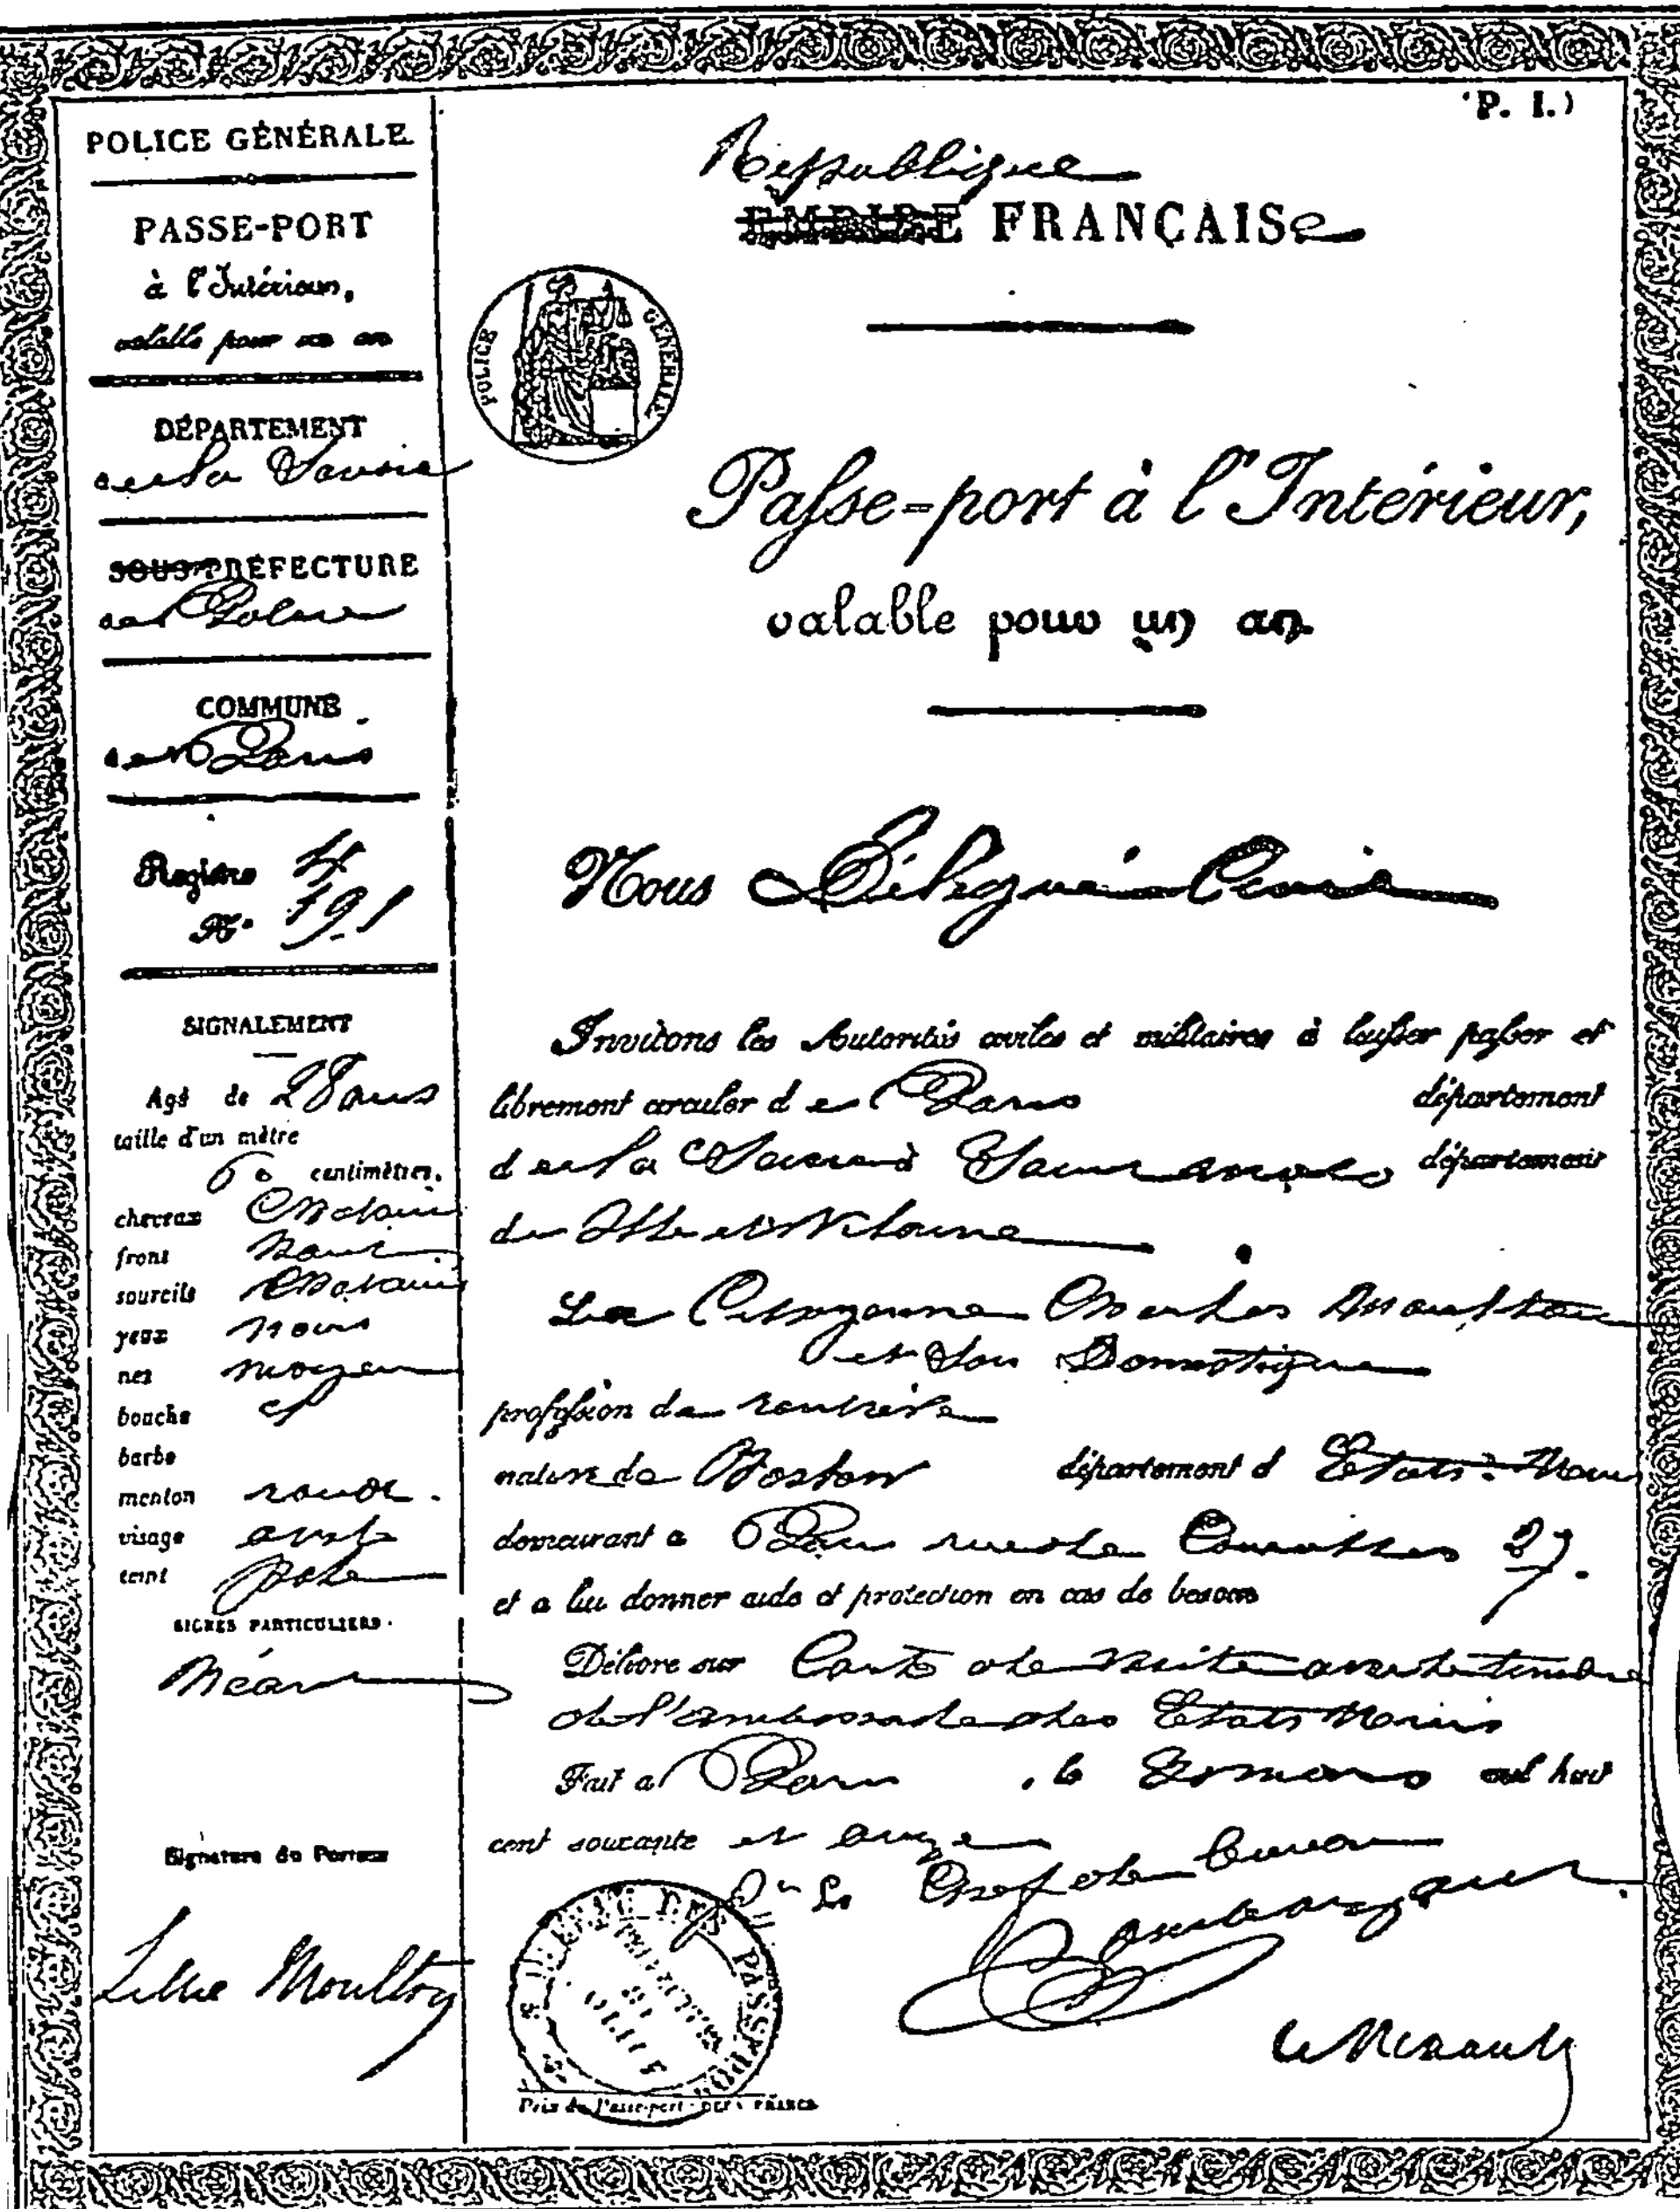 (P. I.)
POLICE GÉNÉRALE
PASSE-PORT
à l'Intérieur,
valable pour un an
DÉPARTEMENT
de la
SOUS-PRÉFECTURE
de Police
COMMUNE
de Paris
Registre
N°
SIGNALEMENT
Agé de 28 ans
taille d'un mètre
60 centimètres.
cheveux Chatain
front haut
sourcils Chatain
yeux noirs
nez moyen
bouche
barbe
menton rond.
visage
teint pale
SIGNES PARTICULIERS.
Néant
Signature du Porteur
Lillie Moulton
République
EMPIRE FRANÇAISe
POLICE GÉNÉRALE
Passe-port à l'Intérieur,
valable pour un an.
Nous Délégué Civil
Invitons les Autorités civiles et militaires à laisser passer et
librement circuler de Paris département
de la à département
de Ille et Vilaine
La Citoyenne Charles Moulton
et son Domestique
profession de rentière
native de Boston département d Etats-Unis
demeurant a Paris rue de 27.
et a lui donner aide et protection en cas de besoin
Délivré sur Carte de visite avec le timbre
de l'ambassade des Etats Unis
Fait a Paris, le mil huit
cent soixante et onze
Le Chef de bureau
DES PASSEPORTS
Prix du Passe-port : FRANCS